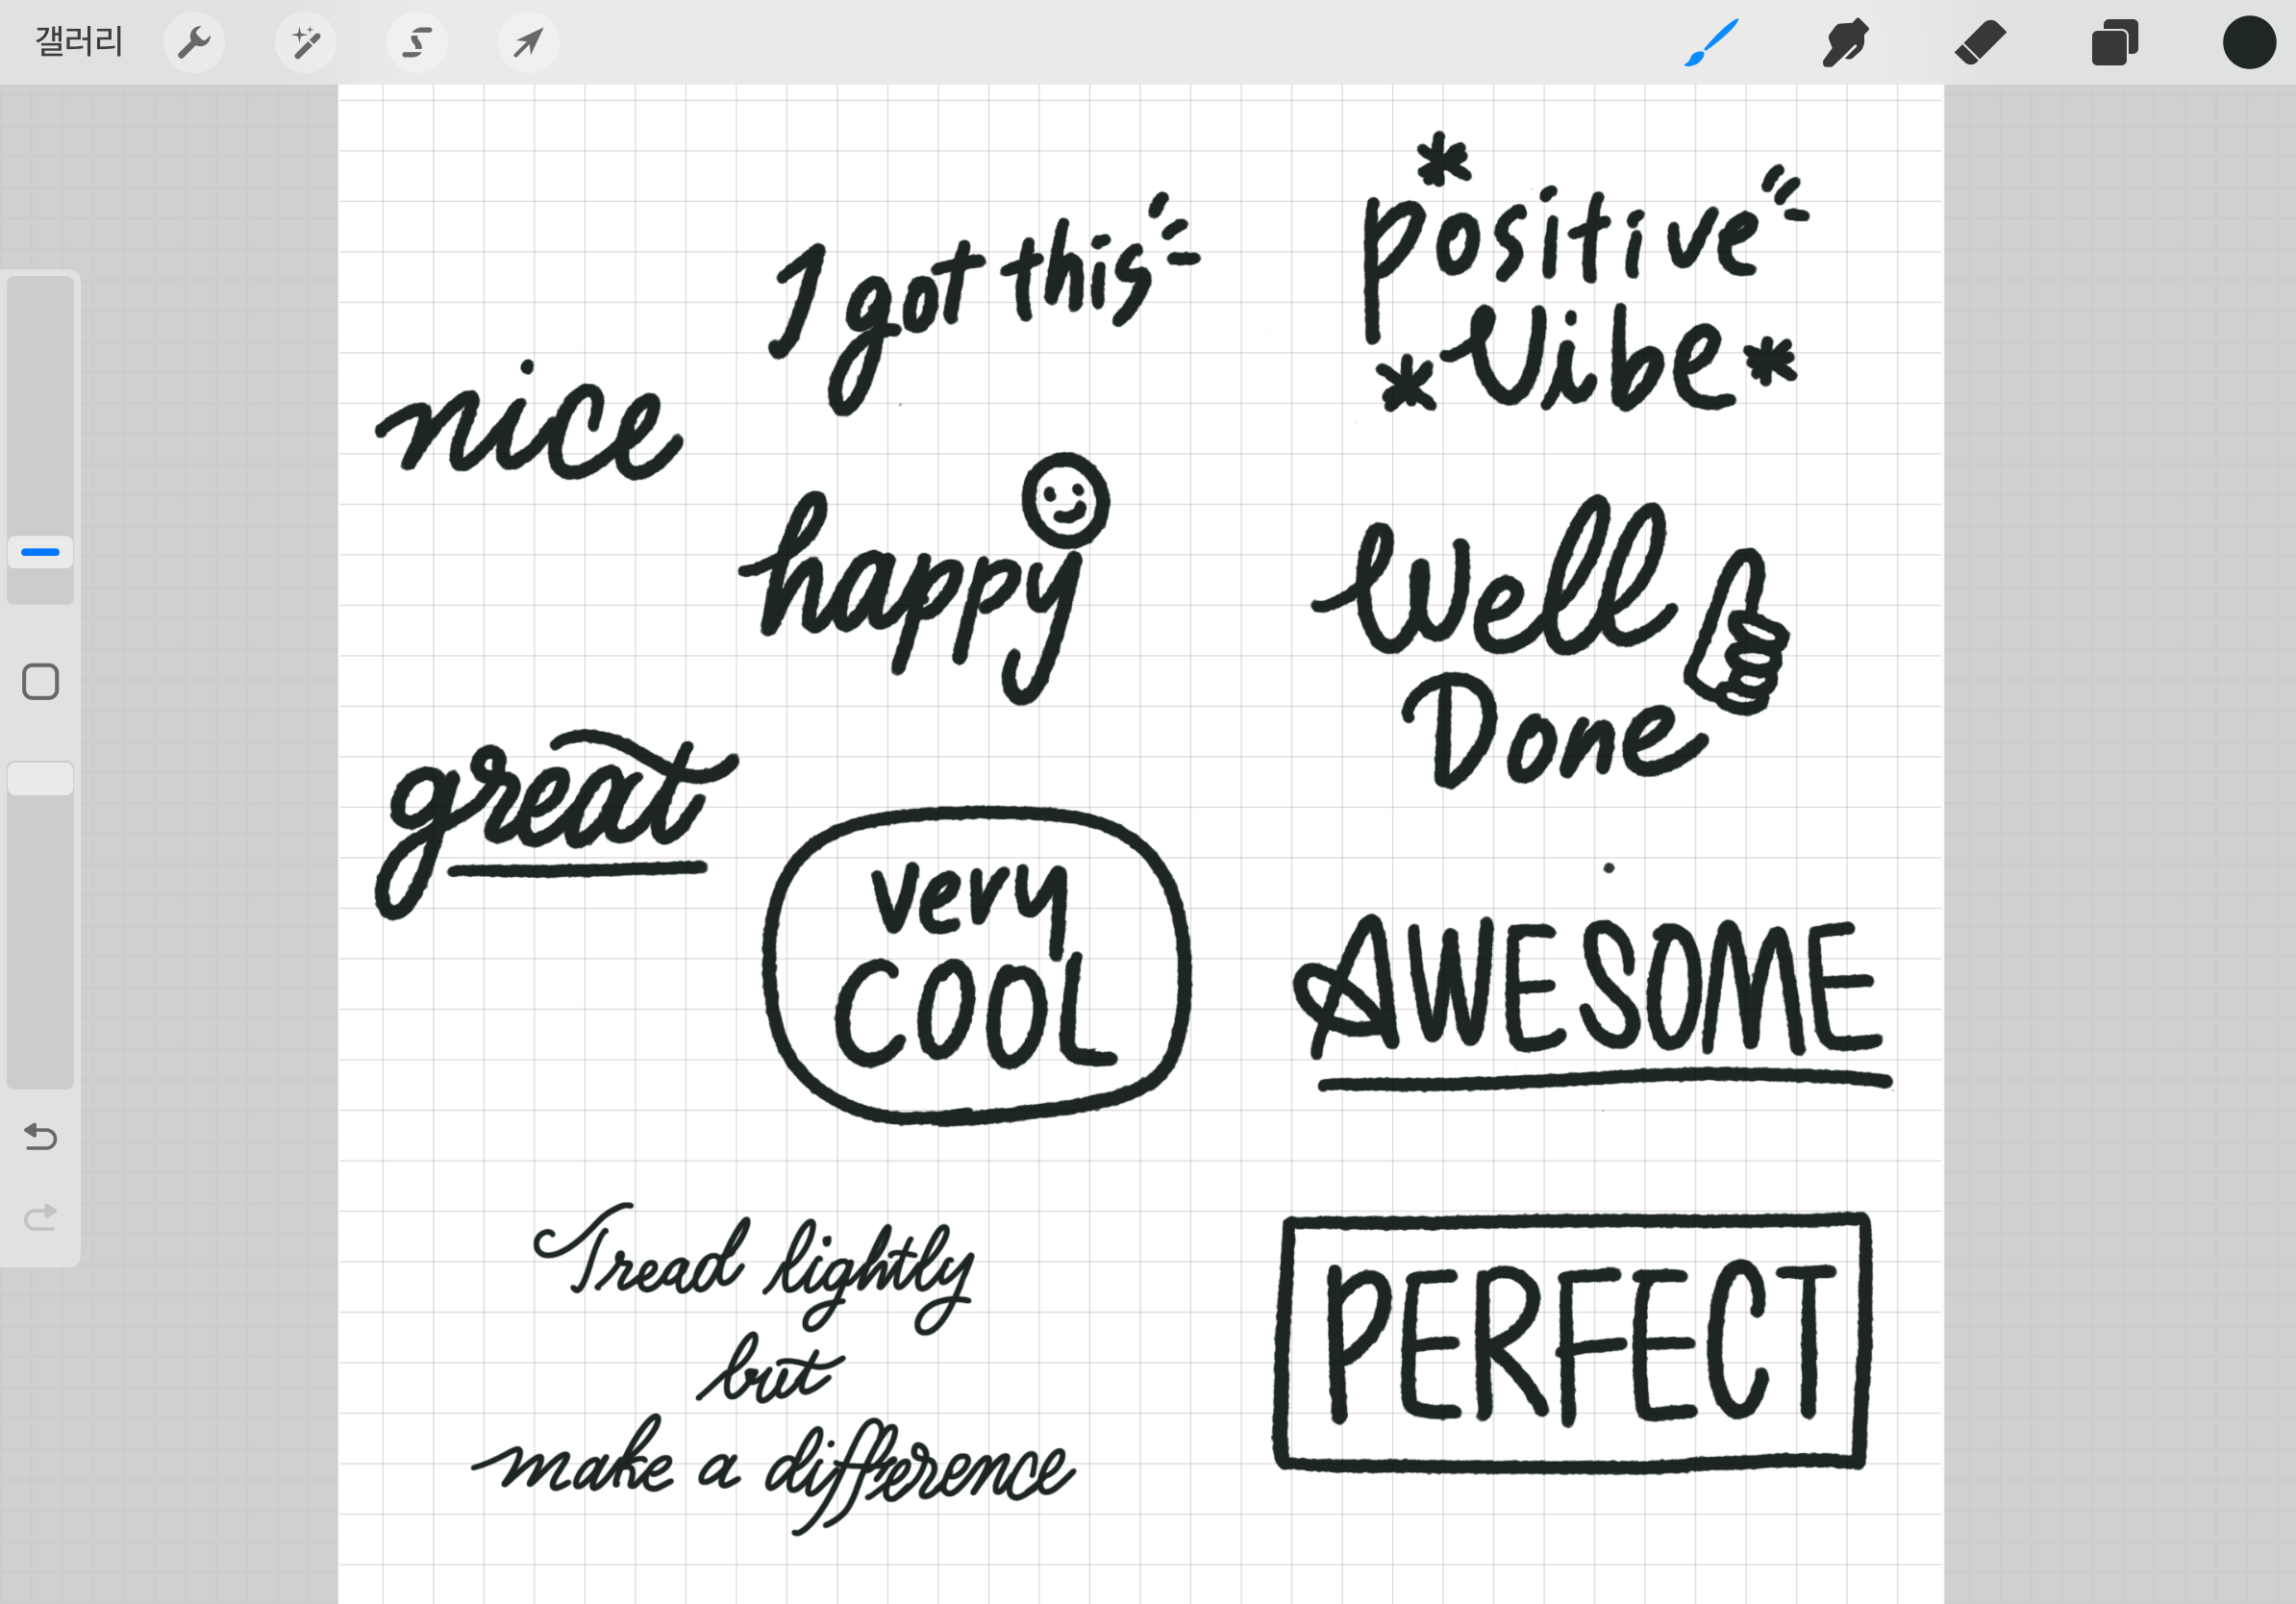 갤러리
I got this
positive
Vibe
nice
happy
Well
Done
great
very
COOL
AWESOME
Tread lightly
but
make a difference
PERFECT